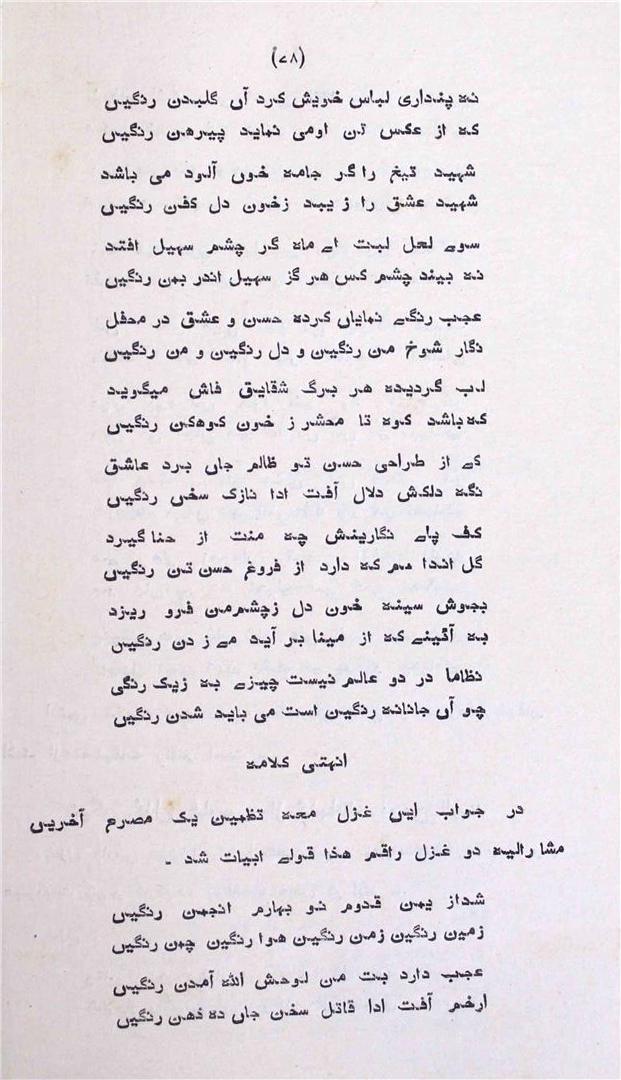 (۷۸)
نه پنداری لباس خویش کرد آں گلبدن رنگیں
که از عکس تن اومی نماید پیرهن رنگیں
شهید تیغ راگر جامه خوں آلود می باشد
شهید عشق را زیبد زخون دل کفن رنگیں
سوے لعل لبت اے ماه گر چشم سهیل افتد
نه بیند چشم کس هر گز سهیل اندر یمن رنگیں
عجب رنگے نمایاں کرده حسن و عشق در محفل
نگار شوخ من رنگیں و دل رنگین و من رنگیں
لب گردیده هر برگ شقایق فاش میگوید
که باشد کوه تا محشر ز خون کوهکن رنگیں
کے از طراحی حسن تو ظالم جاں برد عاشق
نگه دلکش دلال آفت ادا نازک سخں رنگیں
کف پاے نگارینش چه منت از حنا گیرد
گل اندا مم که دارد از فروغ حسن تن رنگیں
بجوش سینه خون دل زچشم من فرو ریزد
به آئینے که از مینا بر آید مے ز دن رنگیں
نظاما در دو عالم نیست چیزے به زیک رنگی
چو آں جانانه رنگین است می باید شدن رنگیں
انهتی کلامه
در جواب ایں غزل معه تظمین یک مصرم آخریں
مشارالیه دو غزل راقم هذا قولے ابیات شد ۔
شداز یمن قدوم نو بهارم انجمن رنگیں
زمیں رنگیں زمن رنگیں هوا رنگین چمن رنگیں
عجب دارد بت من لوحش الله آمدن رنگیں
ارخم آفت ادا قاتل سخن جاں ده ذهن رنگیں